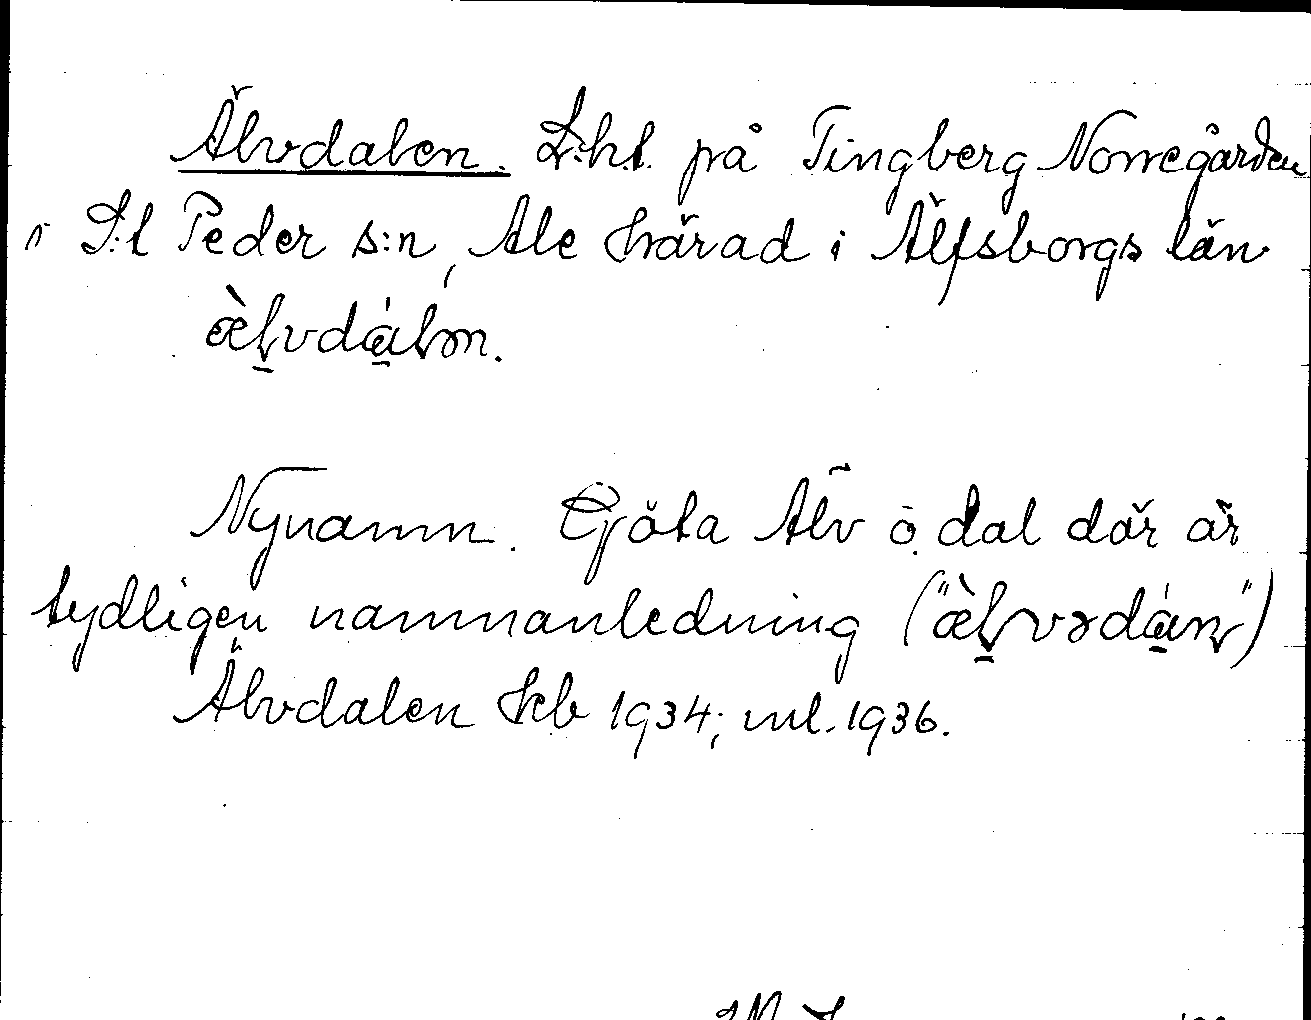 Älvdalen. L:ht. på Tingberg Norregården
i S:t Peder s:n, Ale härad i Älfsborgs län
æ̀ḷvdálən.
Nynamn. Göta Älv o. dal där är
tydligen namnanledning ("æ̀ḷvədán")
Älvdalen Jrb 1934; ml. 1936.